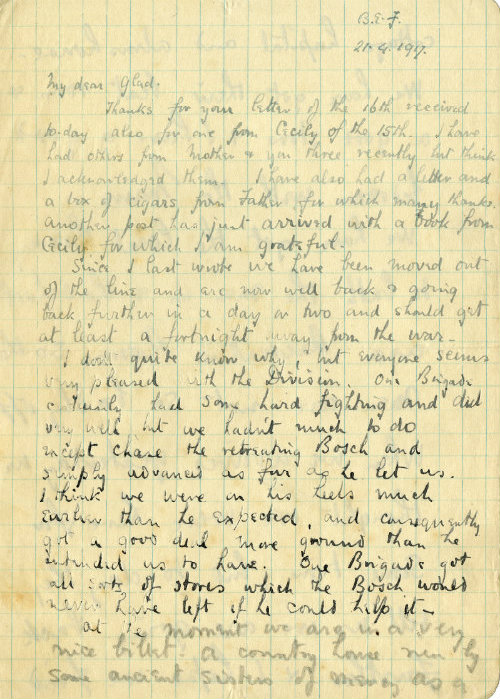 B.E.F.
21.4.1917.
My dear Glad.
Thanks for your letter of the 16th received
to-day, also for one from Cecily of the 15th. I have
had others from Mother & you three recently but think
I acknowledged them. I have also had a letter and
a box of cigars from Father for which many thanks.
Another post has just arrived with a book from
Cecily for which I am grateful.
Since I last wrote we have been moved out
of the line and are now well back & going
back further in a day or two and should get
at least a fortnight away from the war.
I don't quite know why, but everyone seems
very pleased with the Division. One Brigade
certainly had some hard fighting and did
very well but we hadn't much to do
except chase the retreating Bosch and
simply advanced as far as he let us.
I think we were on his heels much
earlier than he expected, and consequently
got a good deal more ground than he
intended us to have. One Brigade got
all sorts of stores which the Bosch would
never have left if he could help it -
At the moment we are in a very
nice billet. a country house run by
some ancient sisters of mercy as a